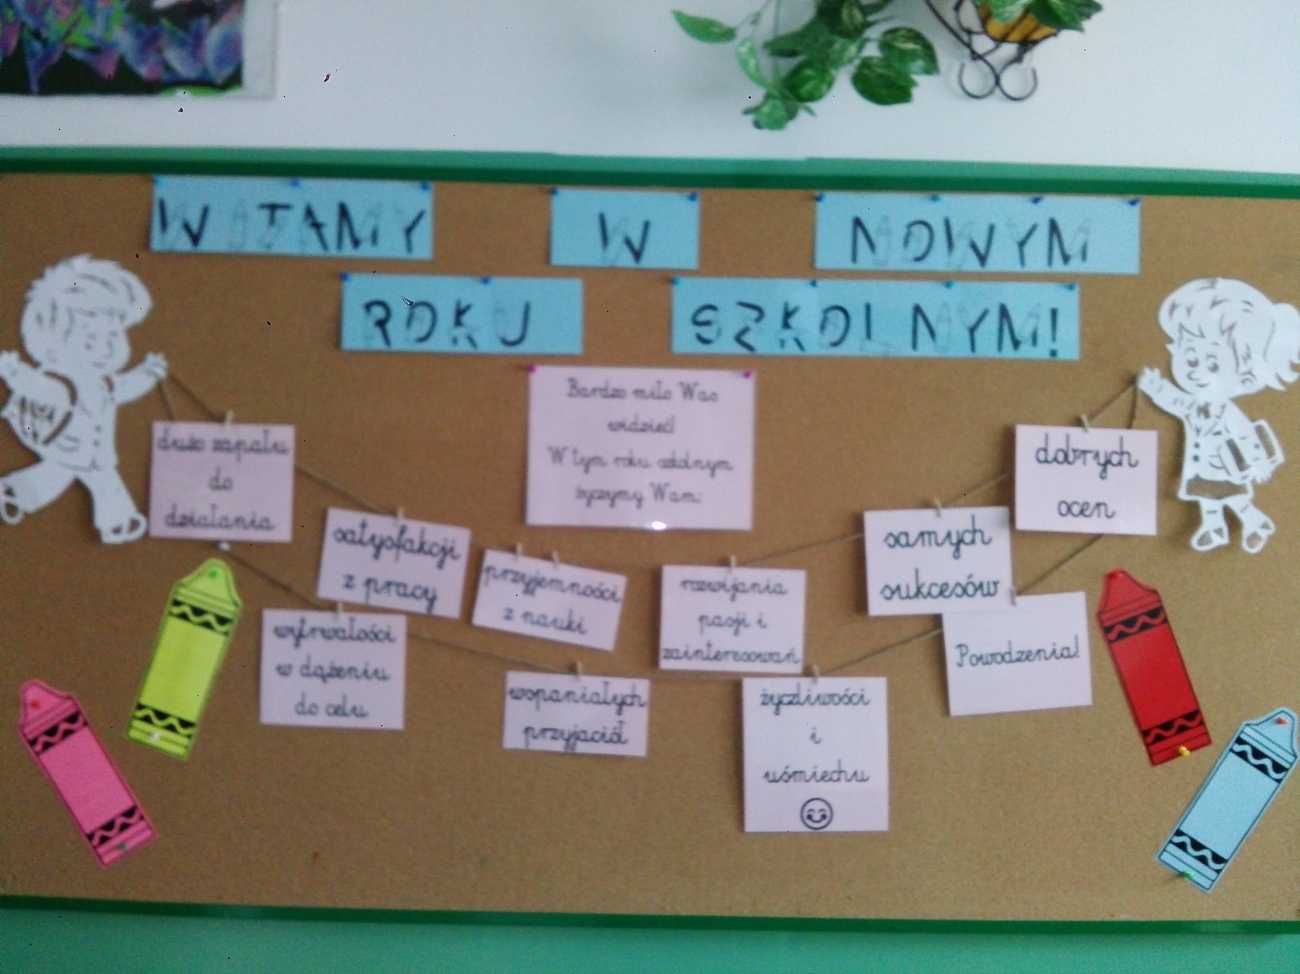 WITAMY W NOWYM
ROKU SZKOLNYM!
Bardzo miło Was
widzieć!
W tym roku szkolnym
życzymy Wam:
dużo zapału
do
działania
satysfakcji
z pracy
przyjemności
z nauki
rozwijania
pasji i
zainteresowań
samych
sukcesów
dobrych
ocen
wytrwałości
w dążeniu
do celu
wspaniałych
przyjaciół
życzliwości
i
uśmiechu
Powodzenia!